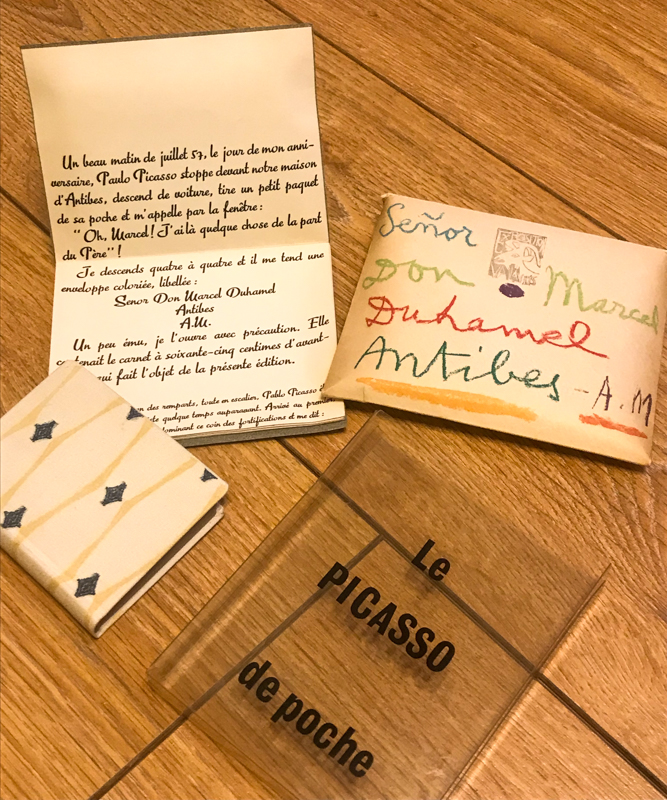 Un beau matin de juillet 57, le jour de mon anni-
versaire, Paulo Picasso stoppe devant notre maison
d'Antibes, descend de voiture, tire un petit paquet
de sa poche et m'appelle par la fenêtre :
“ Oh, Marcel ! J'ai là quelque chose de la part
du Père ” !
Je descends quatre à quatre et il me tend une
enveloppe coloriée, libellée :
Senor Don Marcel Duhamel
Antibes
A.M.
Un peu ému, je l'ouvre avec précaution. Elle
contenait le carnet à soixante-cinq centimes d'avant-
qui fait l'objet de la présente édition.
des remparts, toute en escalier. Pablo Picasso
quelque temps auparavant. Arrivé au
dominant ce coin des fortifications et me dit :
Señor
Don Marcel
Duhamel
Antibes - A.M
Le
PICASSO
de poche